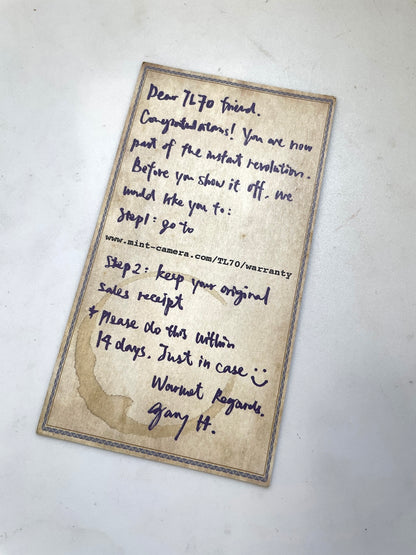 Dear TL70 friend.
Congratulations! You are now
part of the instant revolution.
Before you show it off, we
would like you to:
Step1: go to
www.mint-camera.com/TL70/warranty
Step2: keep your original
sales receipt
* Please do this within
14 days. Just in case :)
Warmest Regards.
Gary H.